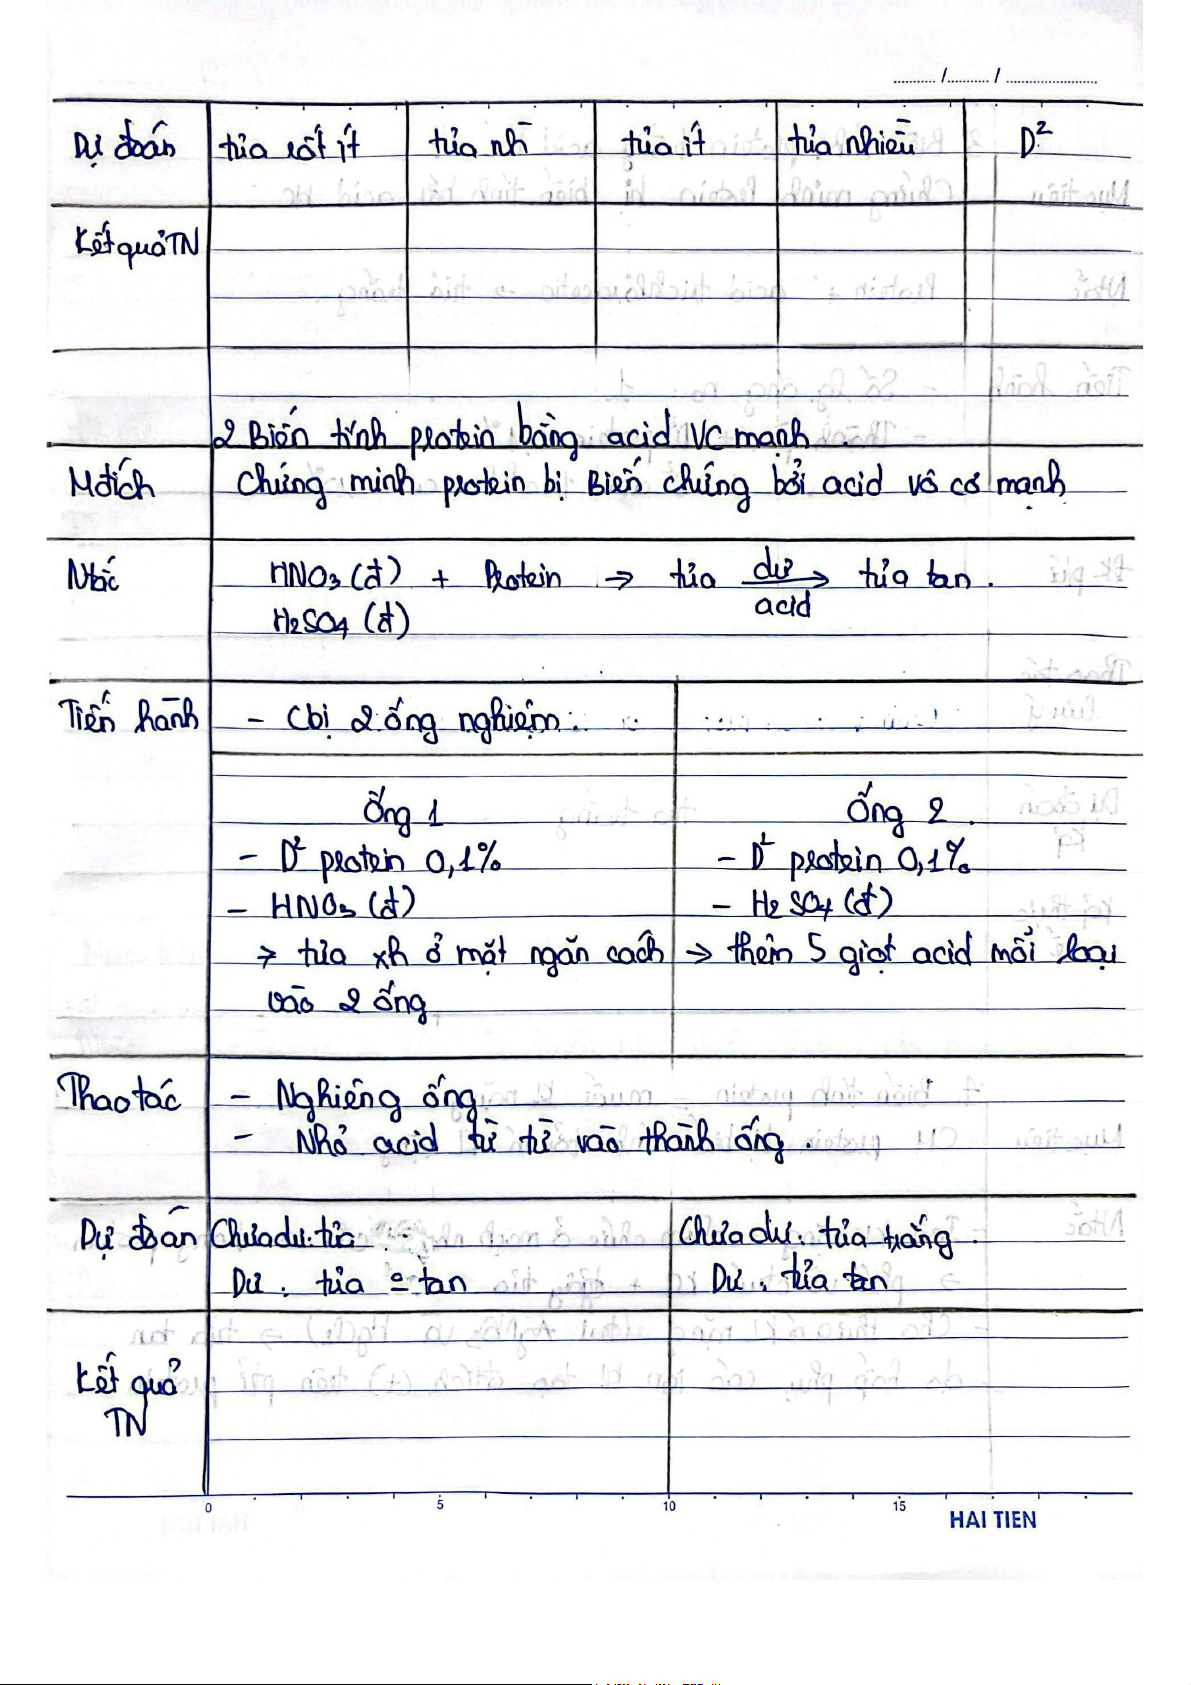 ............ /............ / ..........................
Dự đoán tủa rất ít tủa nh tủa ít tủa nhiều D²
Kết quả TN
2 Biến tính protein bằng acid VC mạnh.
Mđích Chứng minh protein bị Biến chứng bởi acid vô cơ mạnh
Ntắc HNO3 (đ) + Protein → tủa dư → tủa tan.
H2SO4 (đ) acid
Tiến hành - Cbị 2 ống nghiệm.
Ống 1 Ống 2.
- D² protein 0,1% - D² protein 0,1%
- HNO3 (đ) - H2SO4 (đ)
→ tủa xh ở mặt ngăn cách → thêm 5 giọt acid mỗi loại
vào 2 ống
Thao tác - Nghiêng ống
- Nhỏ acid từ từ vào thành ống.
Dự đoán Chưa dư: tủa Chưa dư: tủa trắng.
Dư: tủa o tan Dư: tủa tan
Kết quả
TN
0 5 10 15
HAI TIEN